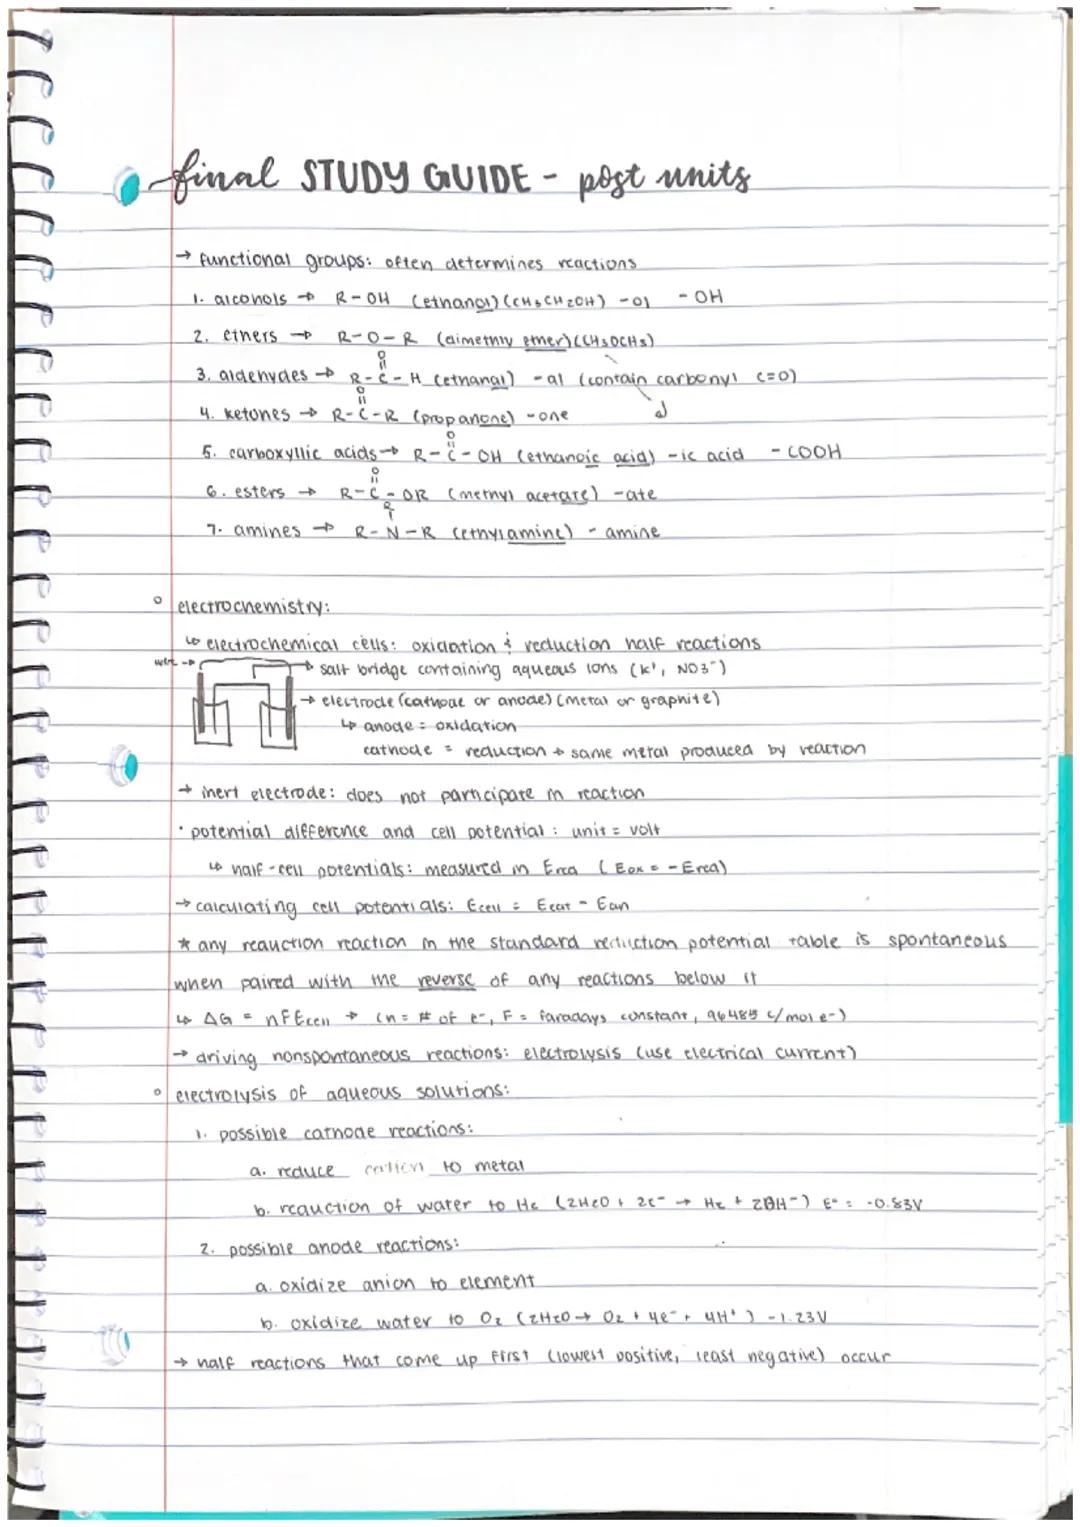 final STUDY GUIDE - post units
→ functional groups: often determines reactions
1. alcohols → R-OH (ethanol) (CH3CH2OH) -ol - OH
2. ethers → R-O-R (dimethly ether) (CH3OCH3)
O
3. aldehydes → R-C-H (ethanal) -al (contain carbonyl C=O)
O
4. ketones → R-C-R (propanone) -one
O
5. carboxyllic acids → R-C-OH (ethanoic acid) -ic acid - COOH
O
6. esters → R-C-OR (methyl acetate) -ate
R
7. amines → R-N-R (ethylamine) - amine
° electrochemistry:
↳ electrochemical cells: oxidation & reduction half reactions
wire → → salt bridge containing aqueous ions (K⁺, NO3⁻)
→ electrode (cathode or anode) (metal or graphite)
↳ anode = oxidation
cathode = reduction → same metal produced by reaction
→ inert electrode: does not participate in reaction
· potential difference and cell potential: unit = volt
↳ half-cell potentials: measured in Ered (Eox = -Ered)
→ calculating cell potentials: Ecell = Ecat - Ean
* any reduction reaction in the standard reduction potential table is spontaneous
when paired with the reverse of any reactions below it
↳ ΔG = nFEcell → (n = # of e⁻, F = faradays constant, 96485 C/mol e⁻)
→ driving nonspontaneous reactions: electrolysis (use electrical current)
° electrolysis of aqueous solutions:
1. possible cathode reactions:
a. reduce cation to metal
b. reduction of water to H2 (2H2O + 2e⁻ → H2 + 2OH⁻) E° = -0.83V
2. possible anode reactions:
a. oxidize anion to element
b. oxidize water to O2 (2H2O → O2 + 4e⁻ + 4H⁺) -1.23V
→ half reactions that come up first (lowest positive, least negative) occur